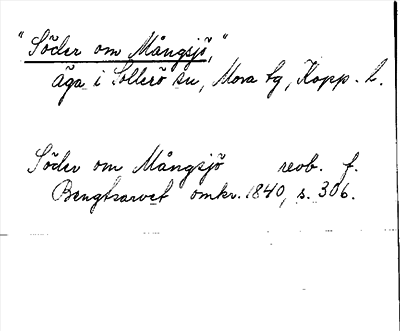 "Söder om Mångsjö,"
äga i Sollerö sn, Mora tg, Kopp. l.
Söder om Mångsjö reob. f.
Bengtsarvet omkr. 1840, s. 306.